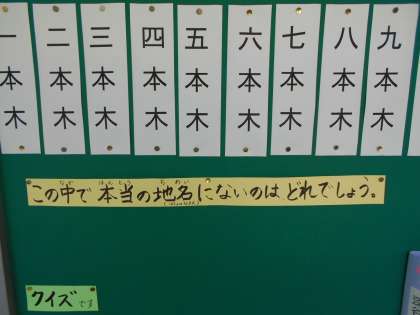 一本木
二本木
三本木
四本木
五本木
六本木
七本木
八本木
九本木
この中で本当の地名にないのはどれでしょう。
クイズです